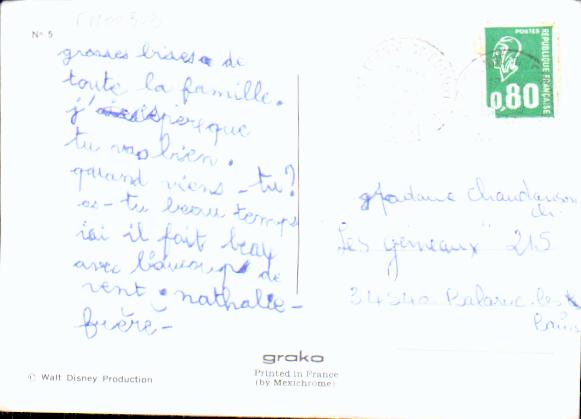 N° 5
grosses bises de
toute la famille.
j'espereque
tu vas bien.
quand viens-tu?
as-tu beau temps
ici il fait beau
avec beaucoup de
vent nathalie-
POSTES
REPUBLIQUE FRANCAISE
0,80
Madame
"Les gémeaux" 215
34540 Balaruc-les
Bains
grako
Printed in France
(by Mexichrome)
© Walt Disney Production